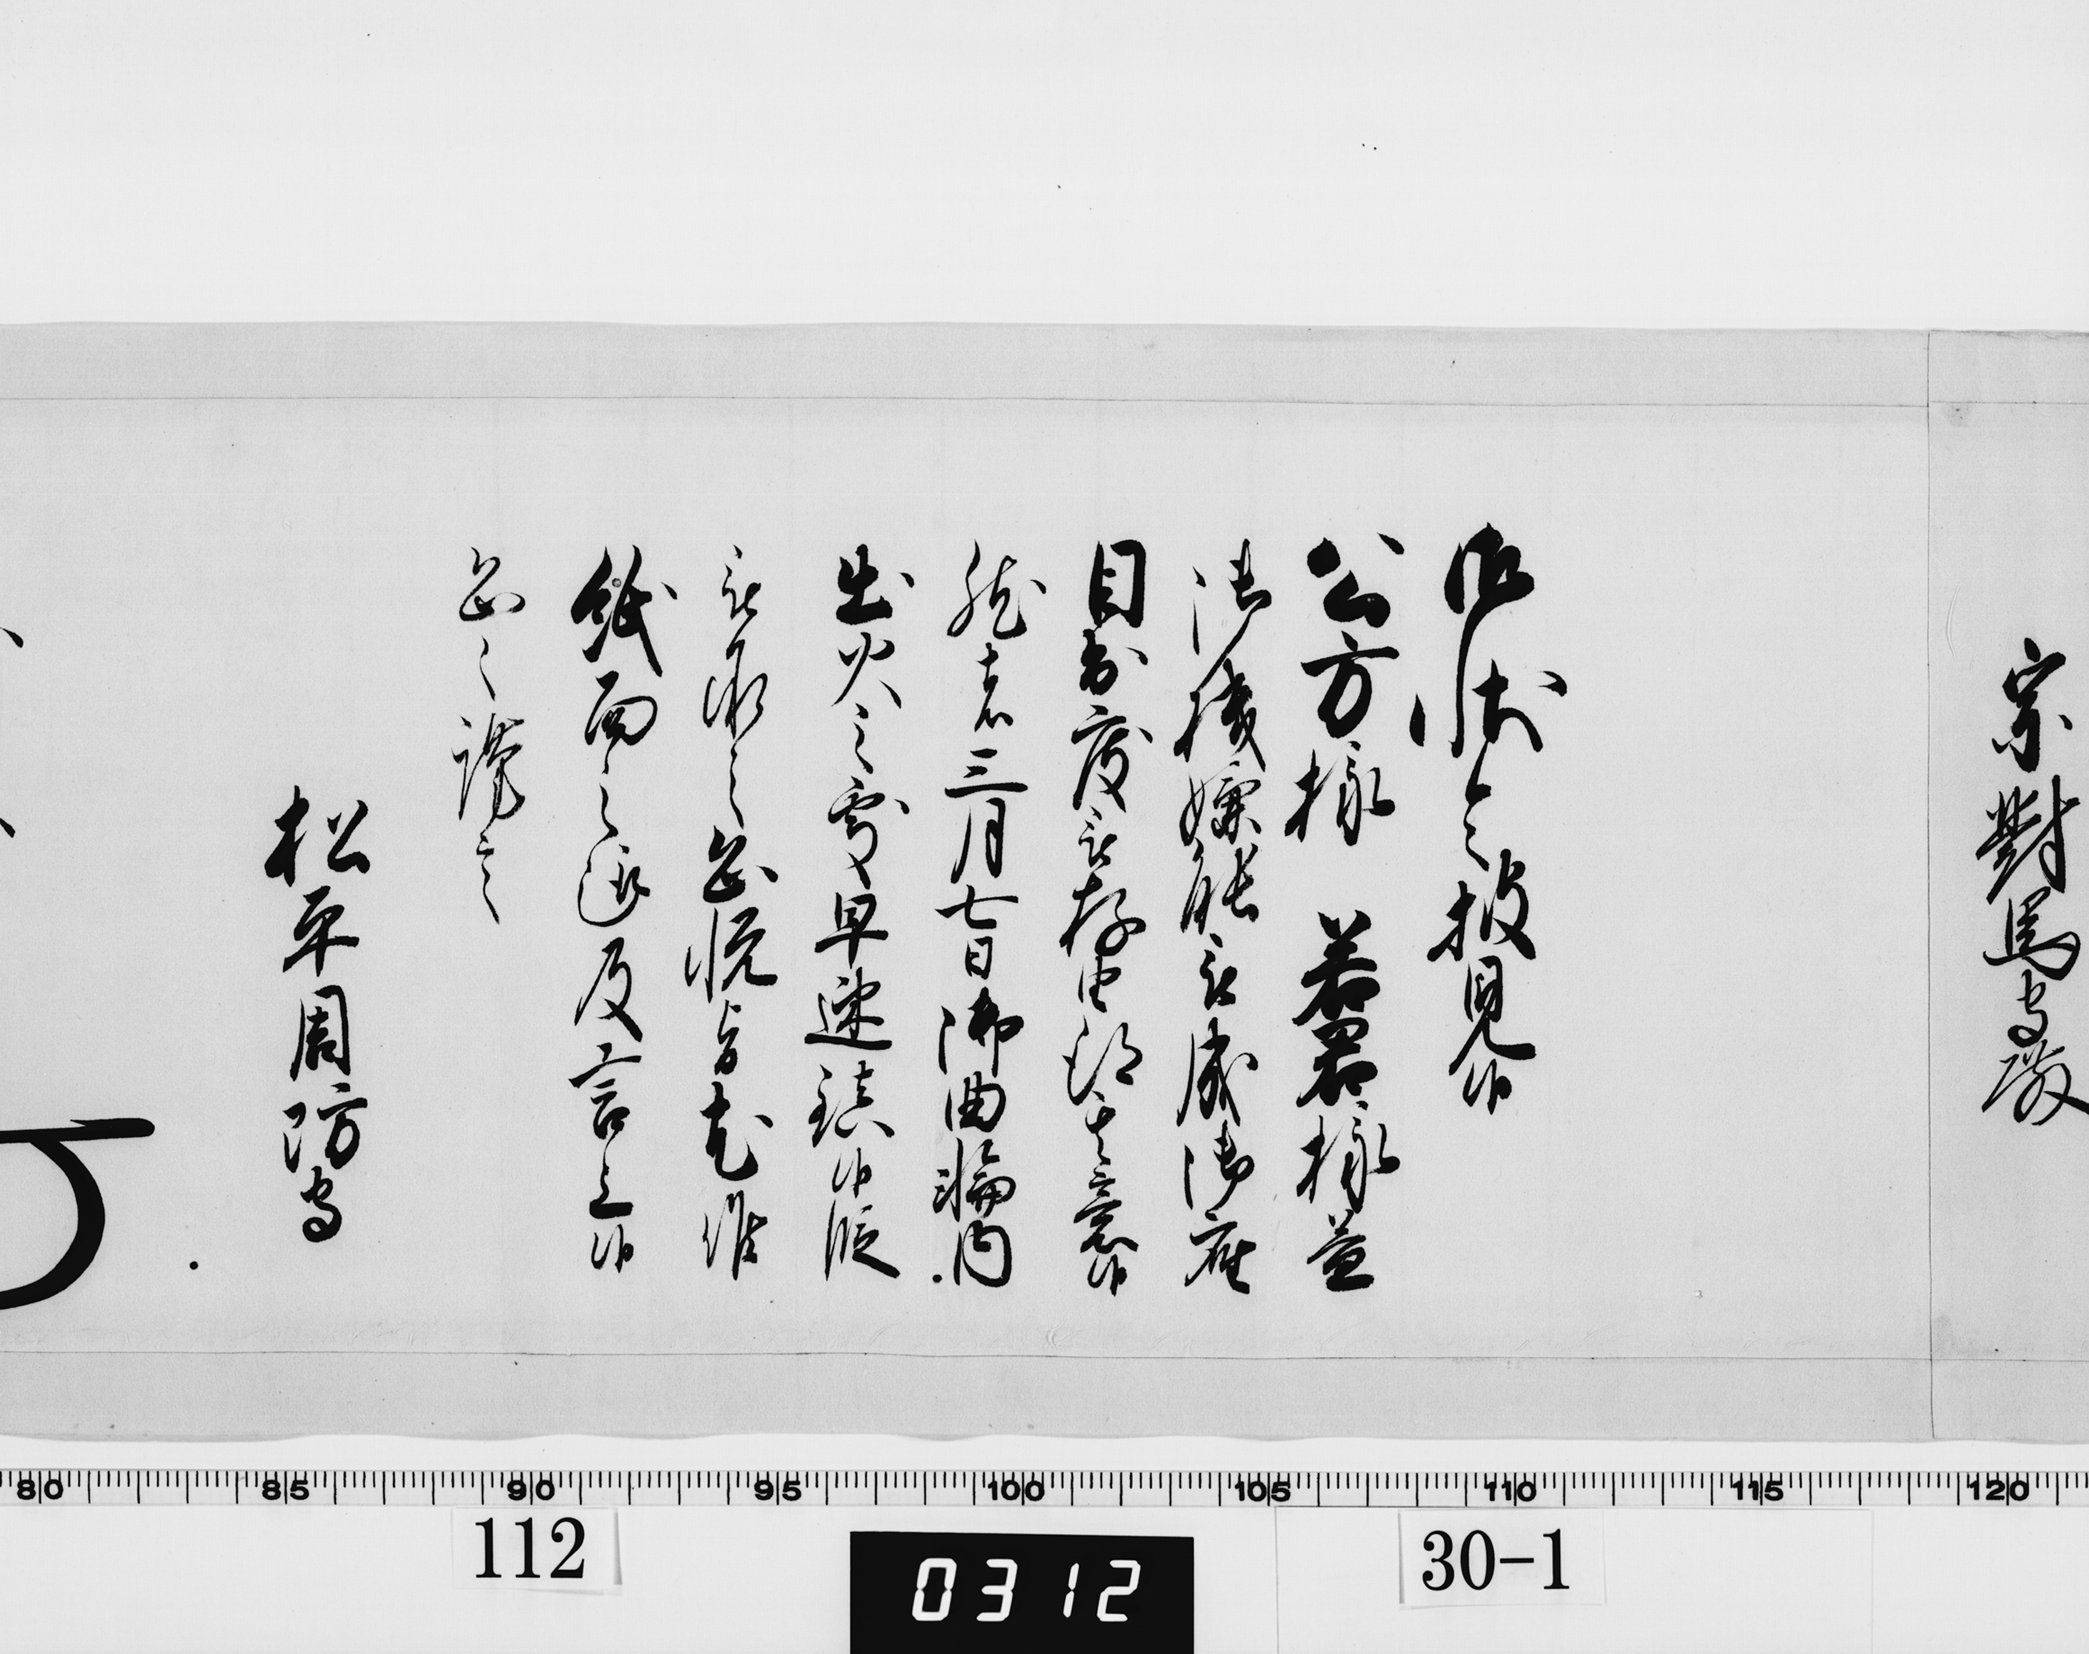 宗對馬守殿
御状令披見候
公方様　若君様益
御機嫌能被成御座
目出度被存由得其意候
然者三月七日御曲輪内
出火之処早速鎮候段
被承之恐悦旨尤候
紙面之趣及言上候
恐々謹言
松平周防守
80 85 90 95 100 105 110 115 120
112
0312
30-1